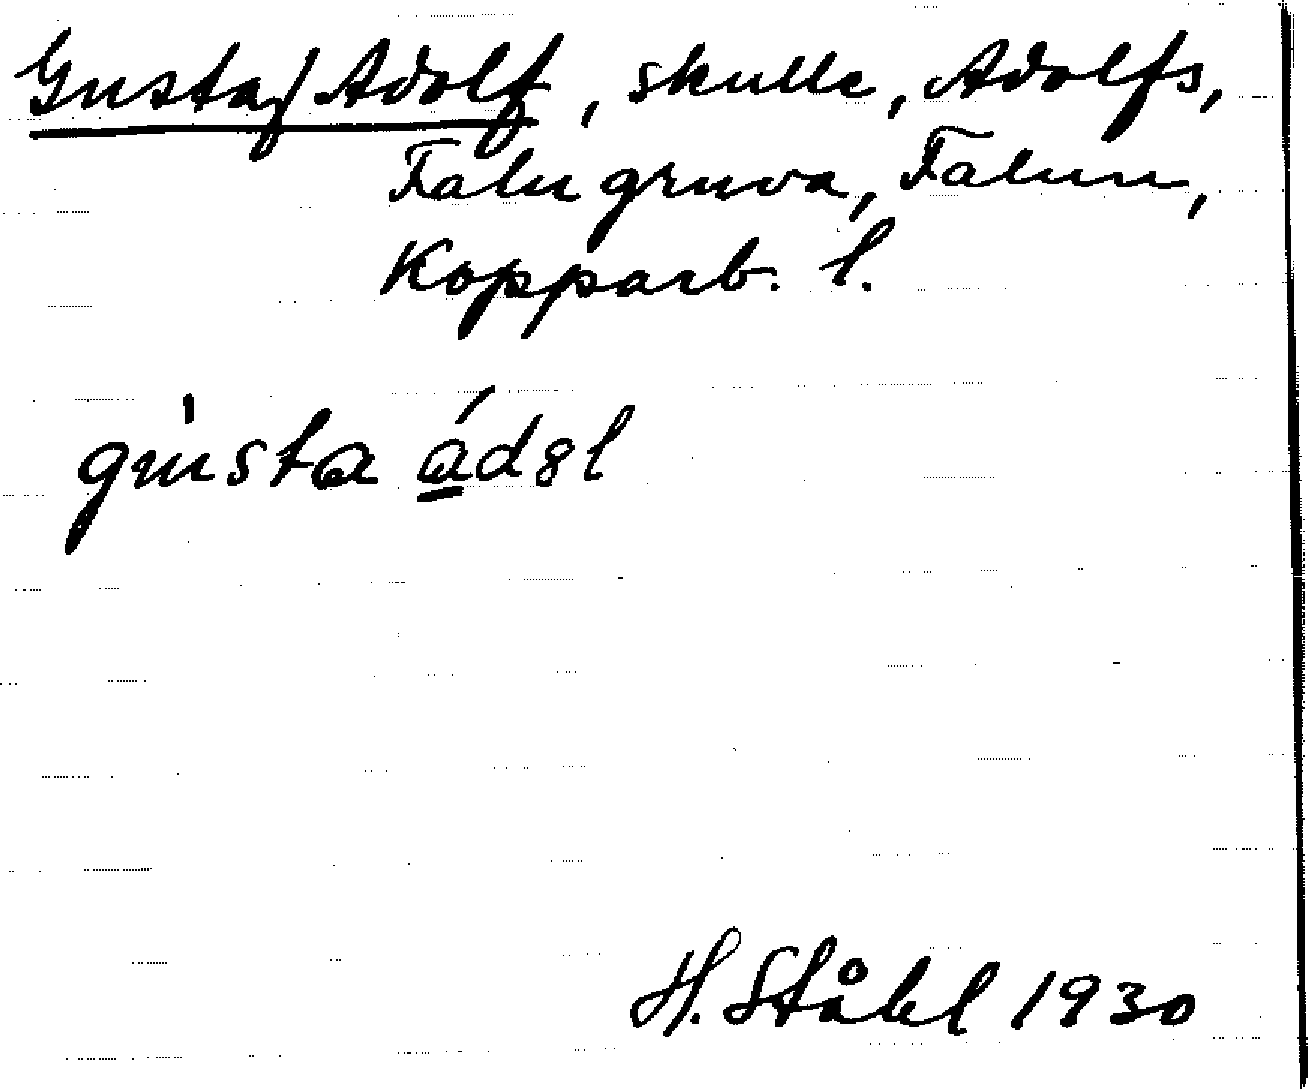 Gustaf Adolf, skulle, Adolfs,
Falu gruva, Falun,
Kopparb. l.
gu̍sta á̲d8l
H. Ståhl 1930